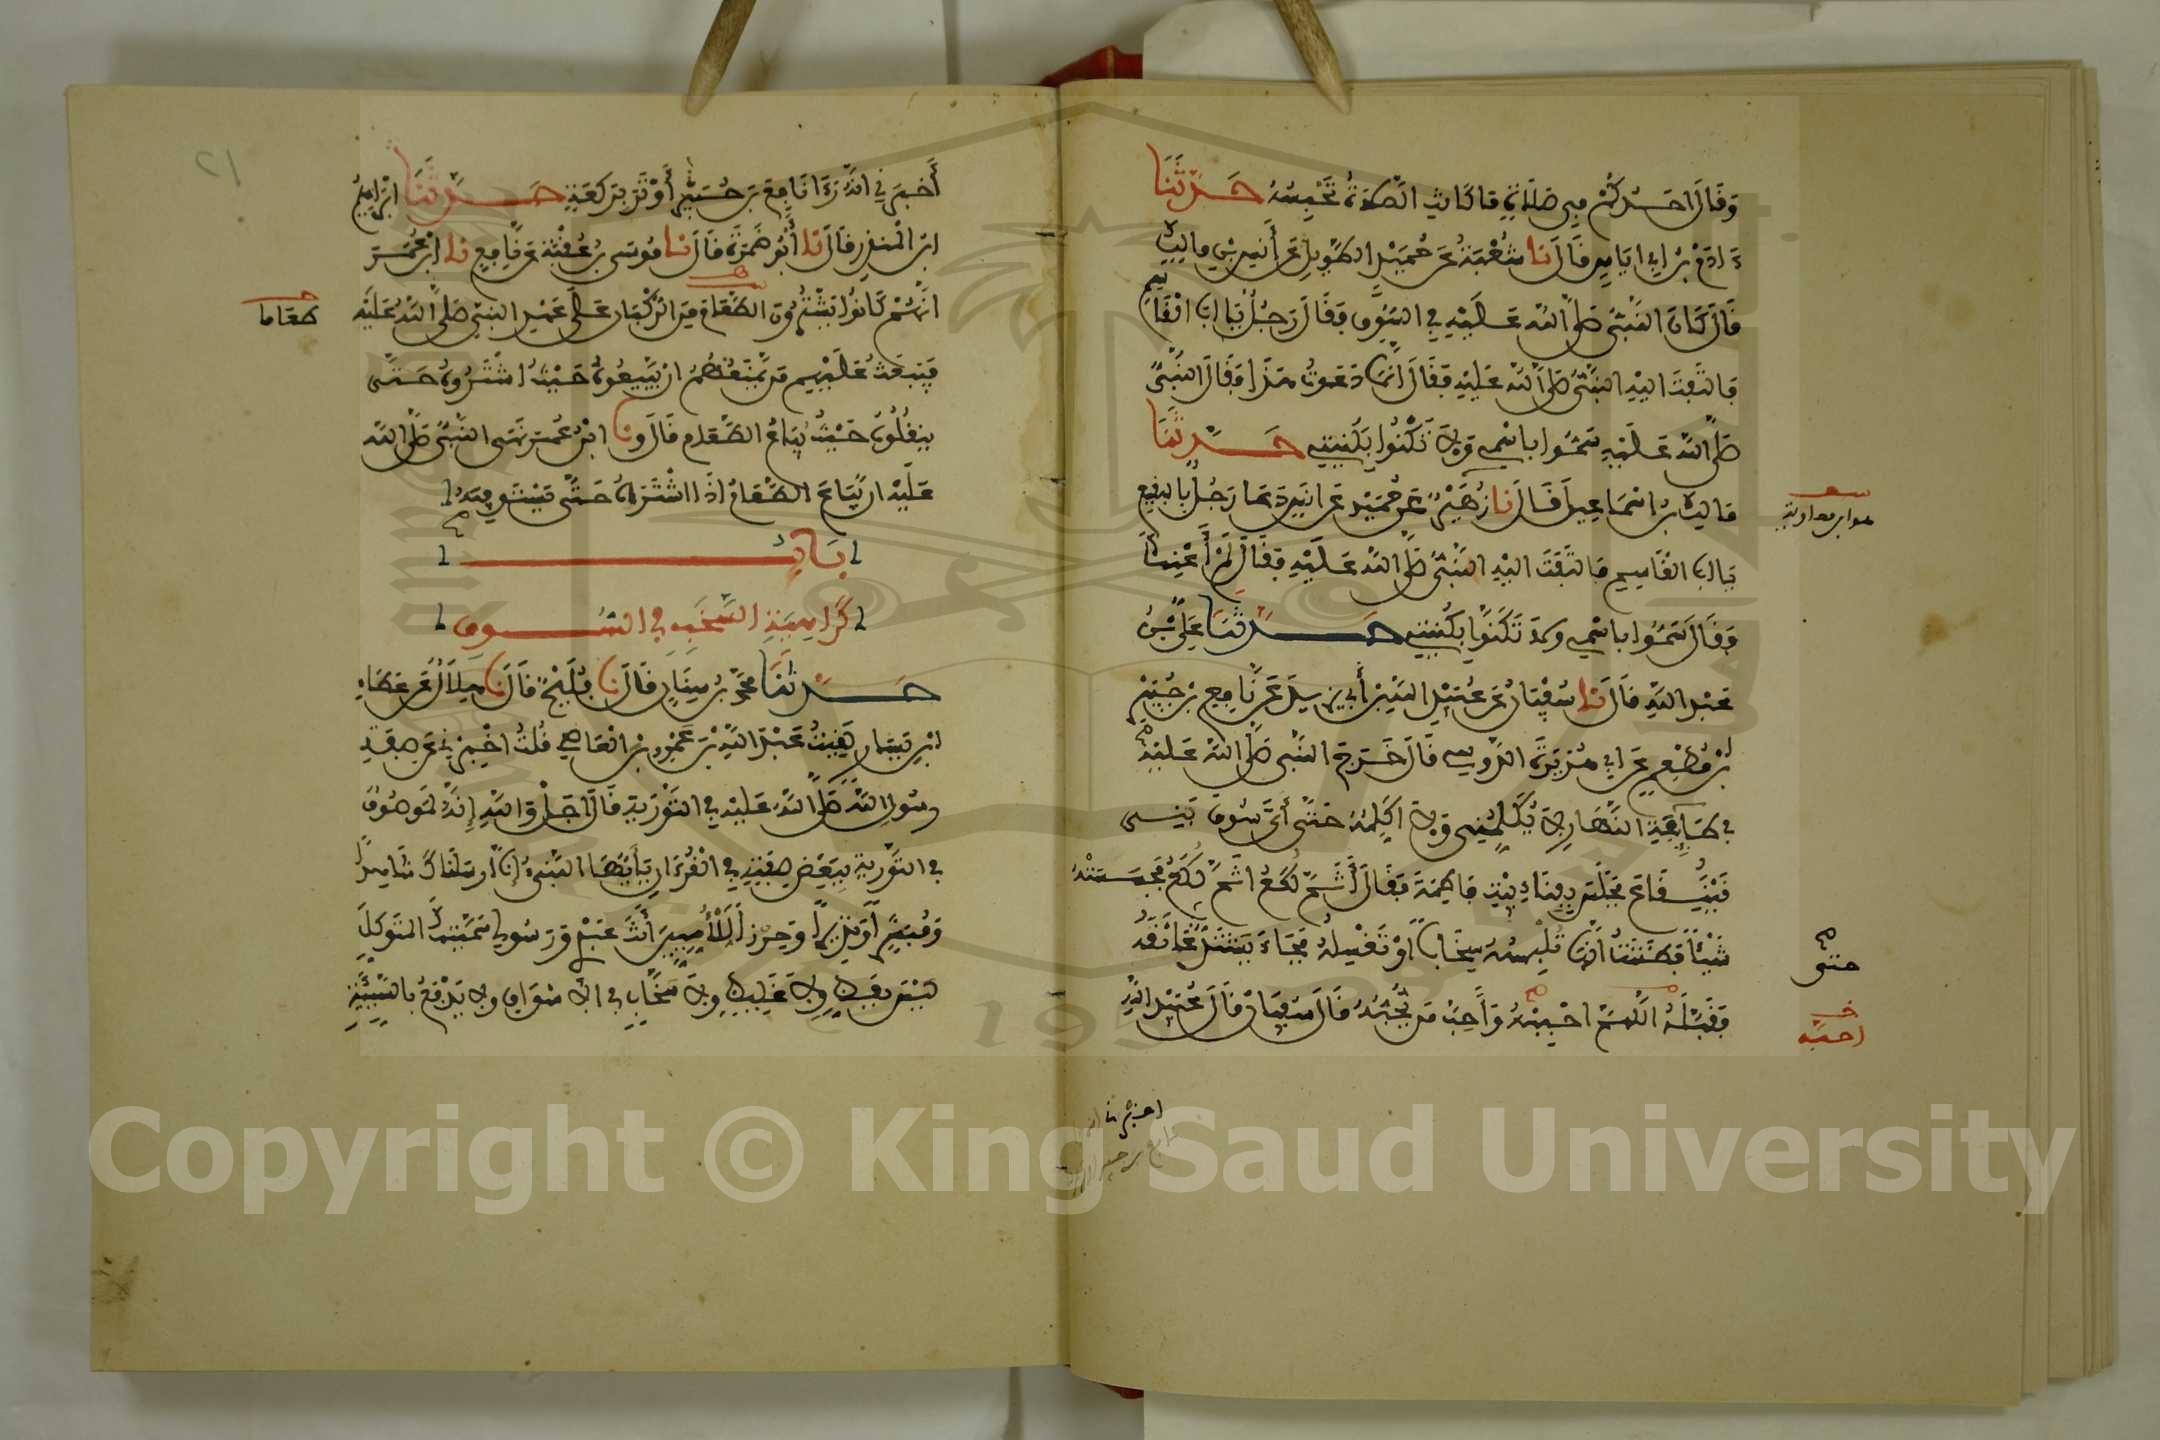 وَقَالَ احَدُكُمْ فِي صَلَاةٍ مَا كَانَتِ الصَّلَاةُ تَحْبِسُهُ حَدَّثَنَا
ءَادَمُ بْنُ ابِي ايَاسٍ قَالَ نا شُعْبَةُ عَن حُمَيْدٍ الطَّوِيلِ عَن أَنَسِ بْنِ مَالِكٍ
قَالَ كَانَ النَّبِيُّ صَلَّى اللهُ عَلَيْهِ فِي السُّوقِ فَقَالَ رَجُلٌ يَا ابَا الْقَاسِمِ
فَالتَفَتَ اليْهِ النَّبِيُّ صَلَّى اللهُ عَلَيْهِ فَقَالَ انَّمَا دَعَوتُ هَذَا فَقَالَ النَّبِيُّ
صَلَّى اللهُ عَلَيْهِ سَمُّوا بِاسْمِي وَلَا تَكْنُوا بِكُنْيَتِي حَدَّثَنَا
مَالِكُ بنُ اسْمَاعِيلَ قَالَ نا زُهَيْرٌ عَن حُمَيْدٍ عَن انَسٍ دَعَا رَجُلٌ بِالبَقِيعِ
يَا ابَا القَاسِمِ فَالتَفَتَ اليْهِ النَّبِيُّ صَلَّى اللهُ عَلَيْهِ فَقَالَ لَمْ أَعْنِكَ
وَقَالَ سَمُّوا بِاسْمِي وَلَا تَكَنَّوْا بِكُنْيَتِي حَدَّثَنَا عَلِيُّ بْنُ
عَبْدِ اللهِ قَالَ نا سُفْيَانُ عَن عُبَيْدِ اللهِ بْنِ أَبِي يَزِيدَ عَن نَافِعِ بْنِ جُبَيْرِ
ابْنِ مُطْعِمٍ عَن ابِي هُرَيْرَةَ الدَّوْسِي قَالَ خَرَجَ النَّبِي صَلَّى اللهُ عَلَيْهِ
فِي طَائِفَةِ النَّهَارِ لَا يُكَلِّمُنِي وَلَا اكَلِّمُهُ حَتَّى أَتَى سُوقَ بَنِي
قَيْنُقَاعَ فَجَلَسَ بِفِنَاءِ بَيْتِ فَاطِمَةَ فَقَالَ أَثَمَّ لُكَعُ اثَمَّ لُكَعُ فَحَبَسَتْهُ
شَيْئًا فَظَنَنْتُ انَّهَا تُلْبِسُهُ سِخَابًا اوْ تُغَسِّلُهُ فَجَاءَ يَشْتَدُّ عَانَقَهُ
وَقَبَّلَهُ اللَّهُمَّ احْبِبْهُ وَأَحِبَّ مَن يُحِبُّهُ قَالَ سُفْيَانُ قَالَ عُبَيْدُ اللهِ
هو ابن معاوية
حتى
احبه
أَخْبَرَنِي انَّهُ رَءَا نَافِعَ بنَ جُبَيْرٍ أَوْتَرَ بِرَكْعَةٍ حَدَّثَنَا ابْرَاهِيمُ
ابْنُ المُنْذِرِ قَالَ نا أَبُو ضَمْرَةَ قَالَ نا مُوسَى بْنُ عُقْبَةَ عَن نَافِعٍ نا ابْنُ عُمَرَ
انَّهُمْ كَانُوا يَشْتَرُونَ الطَّعَامَ مِنَ الرُّكْبَانِ عَلَى عَهْدِ النَّبِي صَلَّى اللهُ عَلَيْهِ
فَيَبْعَثُ عَلَيْهِم مَن يَمْنَعُهُمُ ان يَّبِيعُوهُ حَيْثُ اشْتَرَوهُ حَتَّى
يَنْقُلُوهُ حَيْثُ يُبَاعُ الطَّعَامُ قَالَ ونا ابْنُ عُمَرَ نَهَى النَّبِيُّ صَلَّى اللهُ
عَلَيْهِ ان يُبَاعَ الطَّعَامُ اذَا اشْتَرَاهُ حَتَّى يَسْتَوْفِيَهُ
بَابُ
كَرَاهِيَةِ السَّخَبِ فِي السُّوقِ
حَدَّثَنَا مُحَمَّدُ بنُ سِنَانٍ قَالَ نا فُلَيْحٌ قَالَ نا هِلَالٌ عَن عَطَاءِ
ابْنِ يَسَارٍ لَقِيتُ عَبْدَ اللهِ بْنَ عَمْرِو بْنِ الْعَاصِي قُلْتُ اخْبِرْنِي عَن صِفَةِ
رَسُولِ اللهِ صَلَّى اللهُ عَلَيْهِ فِي التَّوْرَيةِ قَالَ اجَلْ وَاللهِ إِنَّهُ لَمَوْصُوفٌ
فِي التَّوْرَيةِ بِبَعْضِ صِفَتِهِ فِي الْقُرْءَانِ يَأَيُّهَا النَّبِيءُ إِنَّا ارْسَلْنَاكَ شَاهِدًا
وَمُبَشِّرًا وَنَذِيرًا وَحِرْزًا لِلْأُمِّيِّينَ أَنْتَ عَبْدِي وَرَسُولِي سَمَّيْتُكَ المُتَوَكِّلَ
لَيْسَ بِفَظٍّ وَلَا غَلِيظٍ وَلَا سَخَّابٍ فِي الاسْوَاقِ وَلَا يَدْفَعُ بِالسَّيِّئَةِ
طعاما
٢١
اخبرني انه
Copyright © King Saud University